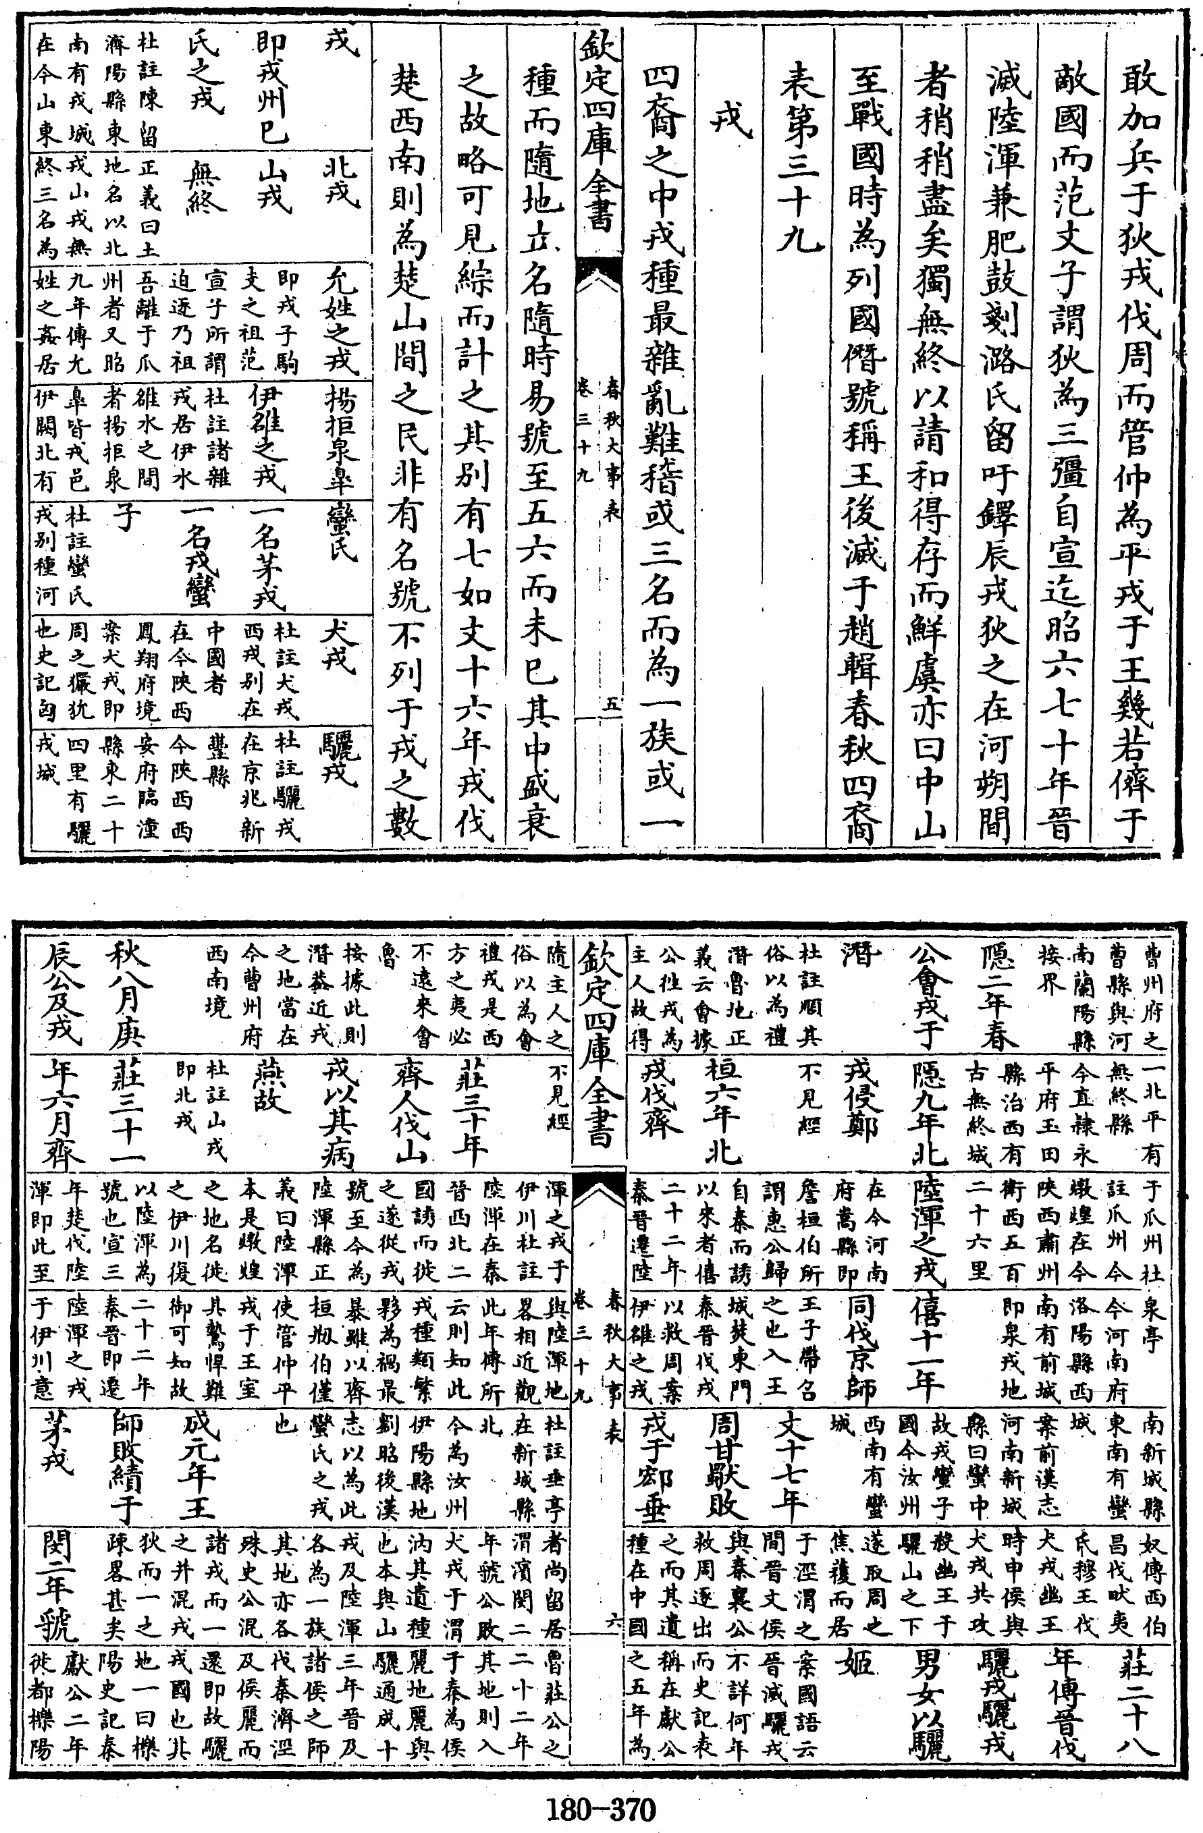 敢加兵于狄戎伐周而管仲為平戎于王幾若儕于
敵國而范文子謂狄為三彊自宣迄昭六七十年晉
滅陸渾兼肥鼓剗潞氏留吁鐸辰戎狄之在河朔間
者稍稍盡矣獨無終以請和得存而鮮虞亦曰中山
至戰國時為列國僭號稱王後滅于趙輯春秋四裔
表第三十九
戎
四裔之中戎種最雜亂難稽或三名而為一族或一
欽定四庫全書
春秋大事表
卷三十九
五
種而隨地立名隨時易號至五六而未已其中盛衰
之故略可見綜而計之其別有七如文十六年戎伐
楚西南則為楚山間之民非有名號不列于戎之數
戎
即戎州已
氏之戎
杜註陳留
濟陽縣東
南有戎城
在今山東
北戎
山戎
無終
正義曰土
地名以北
戎山戎無
終三名為
允姓之戎
即戎子駒
支之祖范
宣子所謂
迫逐乃祖
吾離于瓜
州者又昭
九年傳允
姓之姦居
揚拒泉臯
伊雒之戎
杜註諸雜
戎居伊水
雒水之間
者揚拒泉
臯皆戎邑
伊闕北有
蠻氏
一名茅戎
一名戎蠻
子
杜註蠻氏
戎別種河
犬戎
杜註犬戎
西戎別在
中國者
在今陜西
鳳翔府境
案犬戎即
周之玁狁
也史記匈
驪戎
杜註驪戎
在京兆新
豐縣
今陜西西
安府臨潼
縣東二十
四里有驪
戎城
曹州府之
曹縣與河
南蘭陽縣
接界
隱二年春
公會戎于
潛
杜註順其
俗以為禮
潛魯地正
義云會據
公往戎為
主人故得
隨主人之
俗以為會
禮戎是西
方之夷必
不遠來會
魯
按據此則
潛葢近戎
之地當在
今曹州府
西南境
秋八月庚
辰公及戎
一北平有
無終縣
今直隸永
平府玉田
縣治西有
古無終城
隱九年北
戎侵鄭
不見經
桓六年北
戎伐齊
不見經
莊三十年
齊人伐山
戎以其病
燕故
杜註山戎
即北戎
莊三十一
年六月齊
于瓜州杜
註瓜州今
燉煌在今
陜西肅州
衛西五百
二十六里
陸渾之戎
在今河南
府嵩縣即
詹桓伯所
謂惠公歸
自秦而誘
以來者僖
二十二年
秦晉遷陸
渾之戎于
伊川杜註
陸渾在秦
晉西北二
國誘而徙
之遂從戎
號至今為
陸渾縣正
義曰陸渾
本是燉煌
之地名徙
之伊川復
以陸渾為
號也宣三
年楚伐陸
渾即此至
泉亭
今河南府
洛陽縣西
南有前城
即泉戎地
僖十一年
同伐京師
王子帶召
之也入王
城焚東門
秦晉伐戎
以救周案
伊雒之戎
與陸渾地
畧相近觀
此年傳所
云則知此
戎種類繁
夥為禍最
暴雖以齊
桓剙伯僅
使管仲平
戎于王室
其驁悍難
御可知故
二十二年
秦晉即遷
陸渾之戎
于伊川意
南新城縣
東南有蠻
城
案前漢志
河南新城
縣曰蠻中
故戎蠻子
國今汝州
西南有蠻
城
文十七年
周甘歜敗
戎于邥垂
杜註垂亭
在新城縣
北
今為汝州
伊陽縣地
劉昭後漢
志以為此
蠻氏之戎
也
成元年王
師敗績于
茅戎
奴傳西伯
昌伐畎夷
氏穆王伐
犬戎幽王
時申侯與
犬戎共攻
殺幽王于
驪山之下
遂取周之
焦穫而居
于涇渭之
間晉文侯
與秦襄公
救周逐出
之而其遺
種在中國
者尚留居
渭濱閔二
年虢公敗
犬戎于渭
汭其遺種
也本與山
戎及陸渾
各為一族
其地亦各
殊史公混
諸戎而一
之并混戎
狄而一之
疎畧甚矣
閔二年虢
莊二十八
年傳晉伐
驪戎驪戎
男女以驪
姬
案國語云
晉滅驪戎
不詳何年
而史記表
稱在獻公
之五年為
魯莊公之
二十二年
其地則入
于秦為侯
麗地麗與
驪通成十
三年晉及
諸侯之師
伐秦濟涇
及侯麗而
還即故驪
戎國也其
地一曰櫟
陽史記秦
獻公二年
徙都櫟陽
欽定四庫全書
春秋大事表
卷三十九
六
180-370